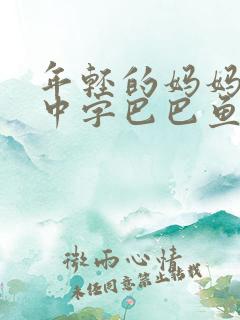 年轻的妈妈
中字巴巴鱼
微雨心情
未经同意禁止转载